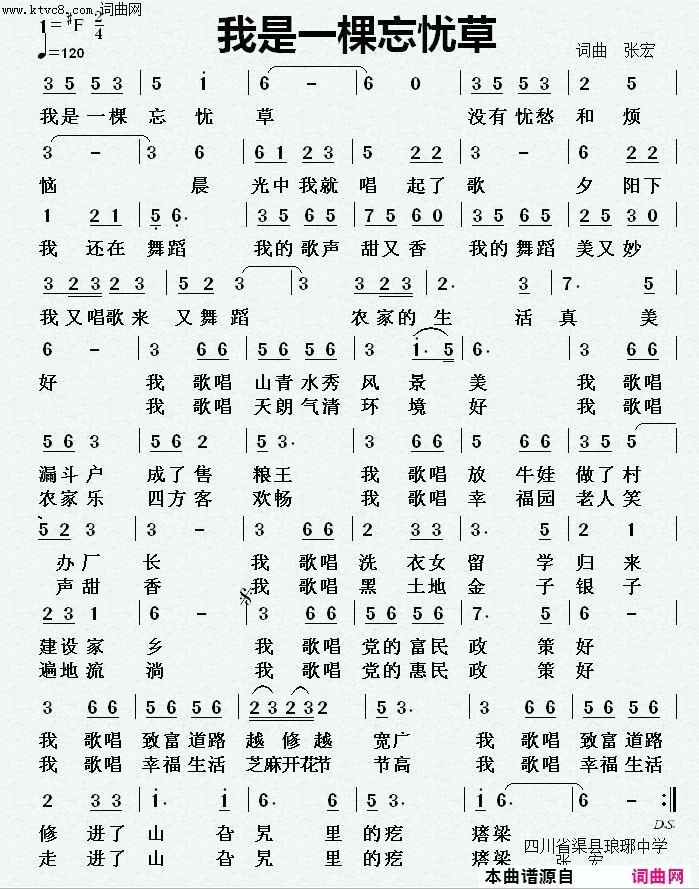 www.ktvc8.com.词曲网
我是一棵忘忧草
1=♯F 2/4
♩=120
词曲 张宏
3 5 5 3 | 5 i | 6 - | 6 0 | 3 5 5 3 | 2 5 |
我是一棵 忘 忧 草 没有忧愁 和 烦
3 - | 3 6 | 6 1 2 3 | 5 2 2 | 3 - | 6 2 2 |
恼 晨 光中我就 唱 起了 歌 夕 阳下
1 2 1 | 5 6. | 3 5 6 5 | 7 5 6 0 | 3 5 6 5 | 2 5 3 0 |
我 还在 舞蹈 我的歌声 甜又香 我的舞蹈 美又妙
3 2 3 2 3 | 5 2 3 | 3 | 3 2 3 | 2. 3 | 7. 5 |
我又唱歌来 又舞蹈 农家的 生 活 真 美
6 - | 3 6 6 | 5 6 5 6 | 3 i. 5 | 6. | 3 6 6 |
好 我 歌唱 山青水秀 风 景 美 我 歌唱
我 歌唱 天朗气清 环 境 好 我 歌唱
5 6 3 | 5 6 2 | 5 3. | 3 6 6 | 5 6 6 | 3 5 5 |
漏斗户 成了售 粮王 我 歌唱 放 牛娃 做了村
农家乐 四方客 欢畅 我 歌唱 幸 福园 老人笑
5 2 3 | 3 - | 3 6 6 | 2 3 3 | 3. 5 | 2 1 |
办厂 长 我 歌唱 洗 衣女 留 学 归 来
声甜 香 我 歌唱 黑 土地 金 子 银 子
2 3 1 | 6 - | 3 6 6 | 5 6 5 6 | 7. 5 | 6 - |
建设家 乡 我 歌唱 党的富民 政 策 好
遍地流 淌 我 歌唱 党的惠民 政 策 好
3 6 6 | 5 6 5 6 | 2 3 2 3 2 | 5 3. | 3 6 6 | 5 6 5 6 |
我 歌唱 致富道路 越 修 越 宽广 我 歌唱 致富道路
我 歌唱 幸福生活 芝麻开花节 节高 我 歌唱 幸福生活
2 3 3 | i. i | 6. 6 | 5 3 | 6. - :‖
D.S.
修 进了 山 旮 旯 里 的疙 瘩梁
走 进了 山 旮 旯 里 的疙 瘩梁
四川省渠县琅琊中学
张 宏
本曲谱源自 词曲网